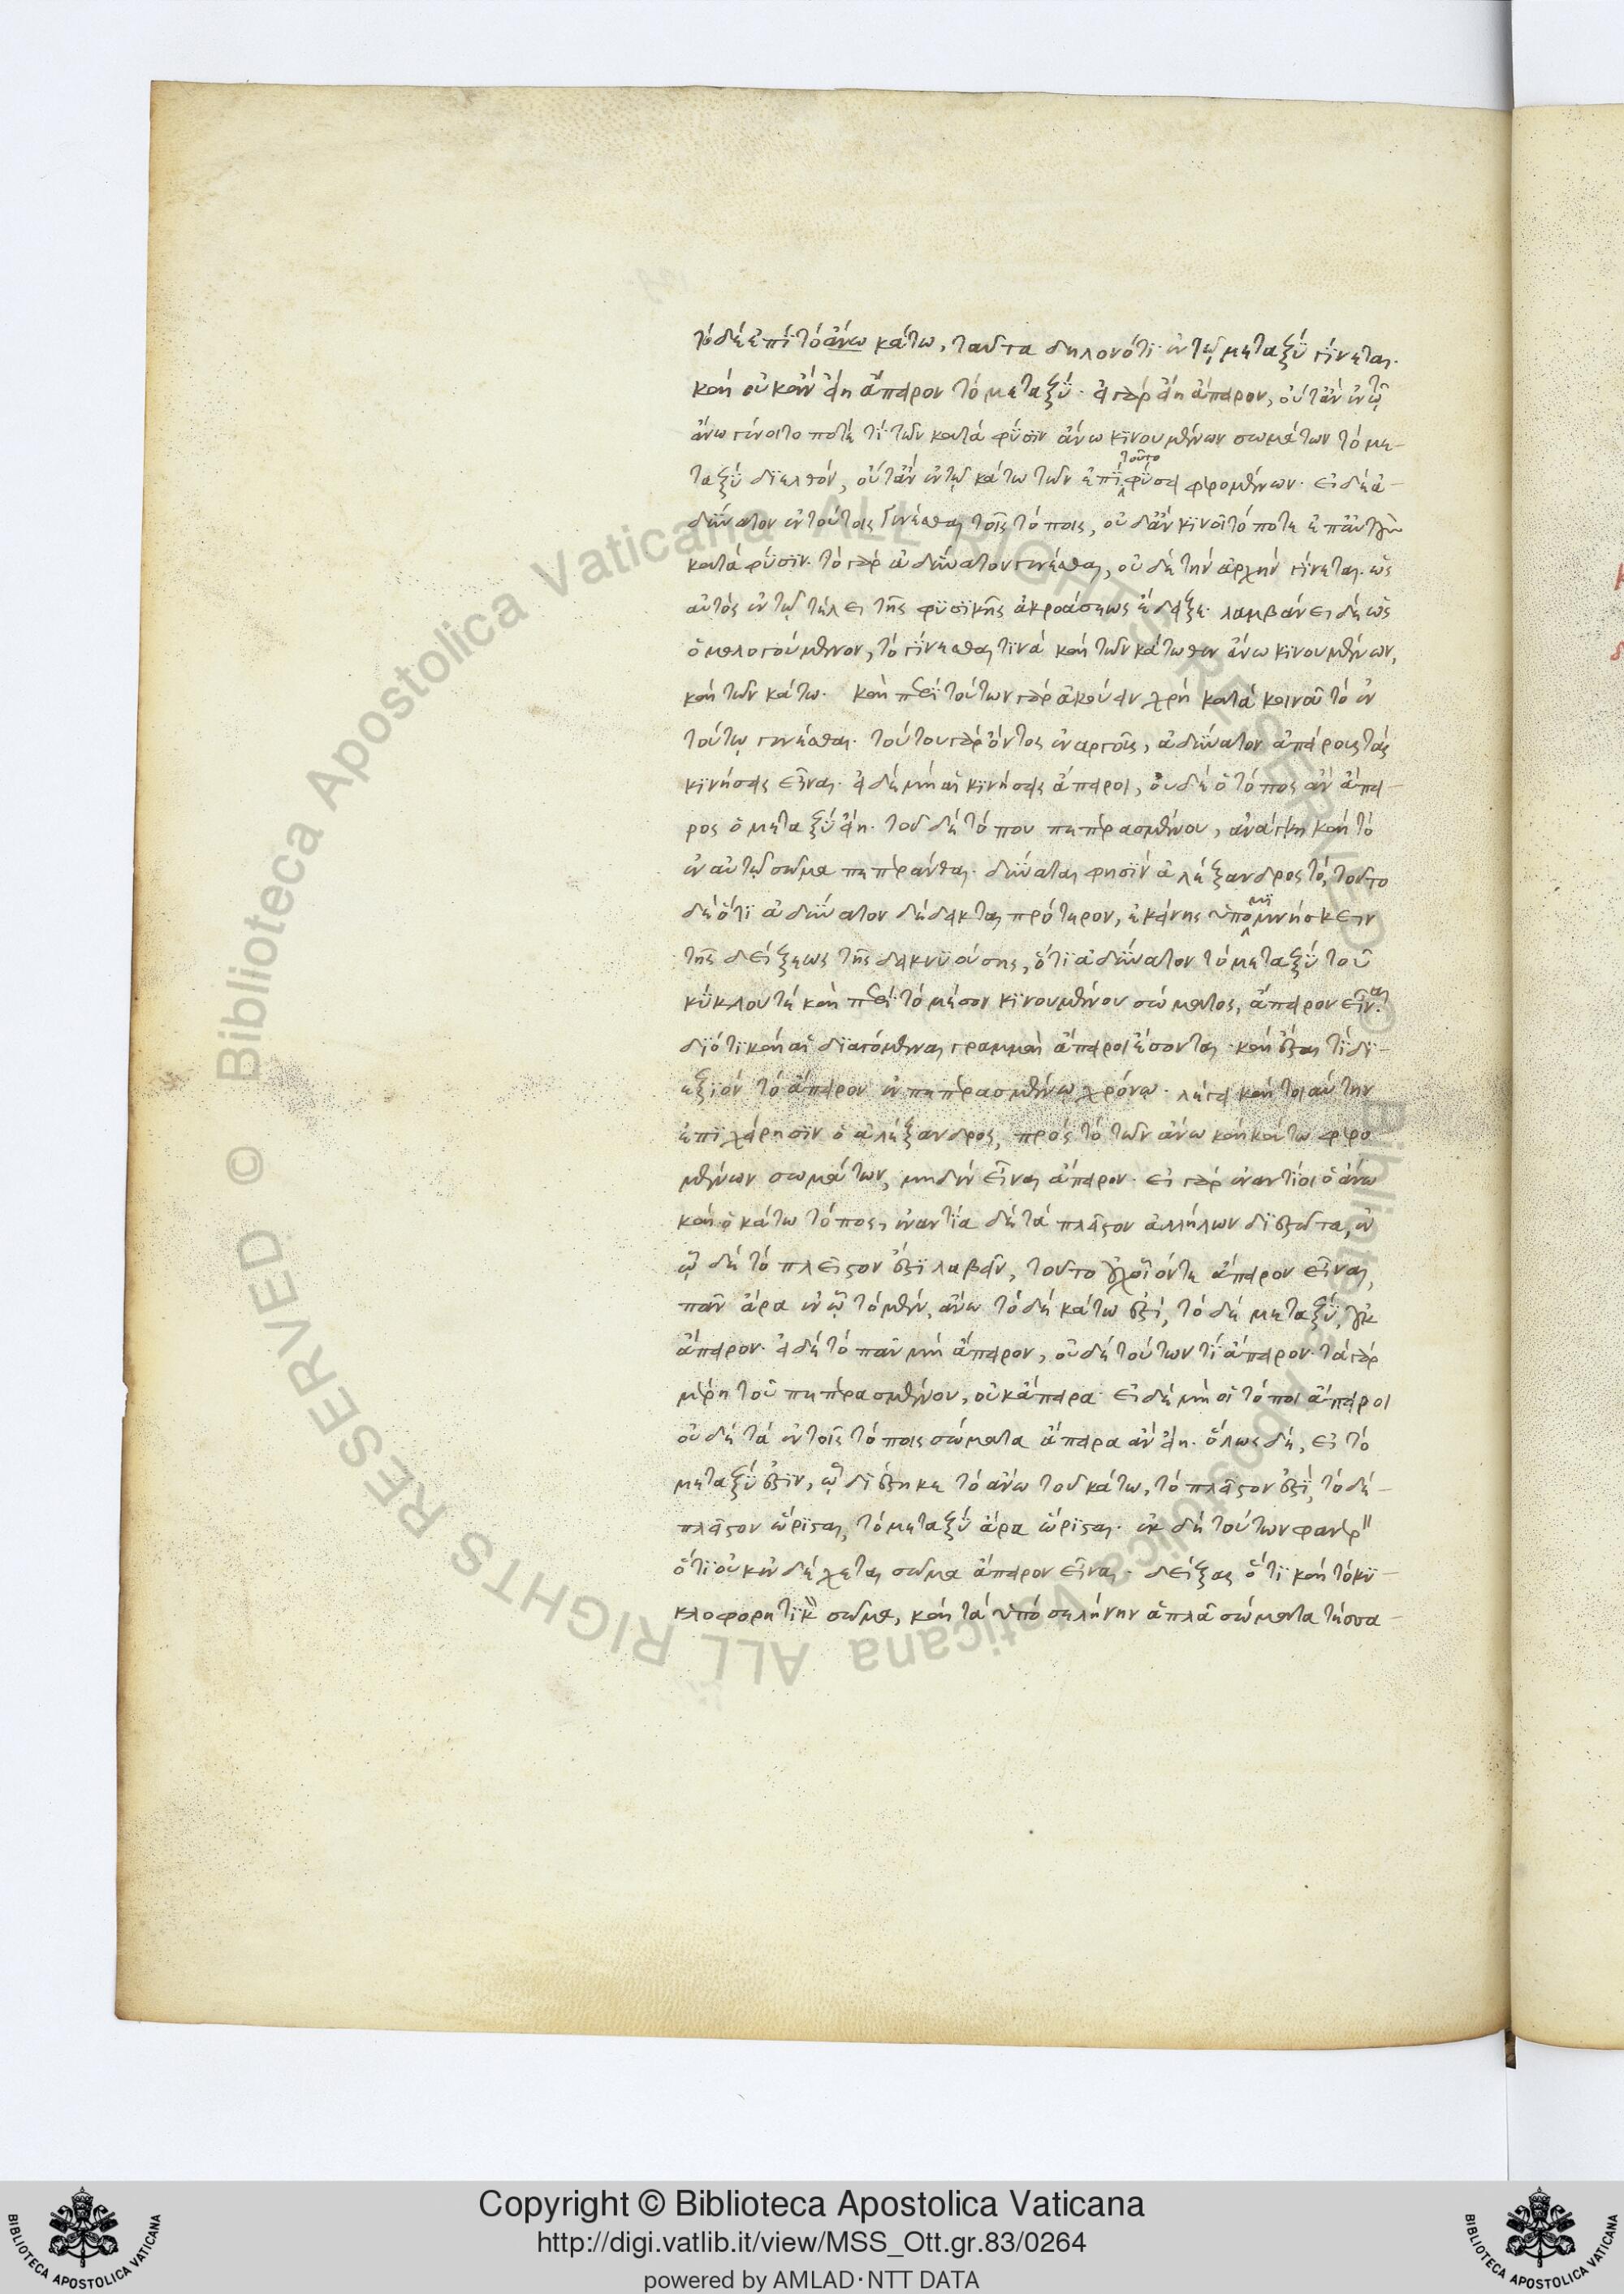 τὸ δὲ ἐπὶ τὸ ἄνω κάτω, ταῦτα δηλονότι ἐν τῷ μεταξὺ γίνεται.
καὶ οὐκ ἂν εἴη ἄπειρον τὸ μεταξύ· εἰ γὰρ εἴη ἄπειρον, οὔτ' ἂν ἐν τῷ
ἄνω γένοιτο ποτέ τι τῶν κατὰ φύσιν ἄνω κινουμένων σωμάτων τὸ με-
ταξὺ διελθόν, οὔτ' ἂν ἐν τῷ κάτω τῶν ἐπὶ τοῦτο φύσει φερομένων. εἰ δὲ ἀ-
δύνατον ἐν τούτοις γενέσθαι τοῖς τόποις, οὐδ' ἂν κινοῖτό ποτε ἐπ' αὐτὰ
κατὰ φύσιν. τὸ γὰρ ἀδύνατον γενέσθαι, οὐδὲ τὴν ἀρχὴν γίνεται. ὡς
αὐτὸς ἐν τῷ τέλει τῆς φυσικῆς ἀκροάσεως ἔδειξε. λαμβάνει δὲ ὡς
ὁμολογούμενον, τὸ γίνεσθαί τινα καὶ τῶν κάτωθεν ἄνω κινουμένων,
καὶ τῶν κάτω. καὶ περὶ τούτων γὰρ ἀκούειν χρὴ κατὰ κοινοῦ τὸ ἐν
τούτῳ γενέσθαι. τούτου γὰρ ὄντος ἐναργοῦς, ἀδύνατον ἀπείρους τὰς
κινήσεις εἶναι. εἰ δὲ μὴ αἱ κινήσεις ἄπειροι, οὐδὲ ὁ τόπος ἂν ἄπει-
ρος ὁ μεταξὺ εἴη. τοῦ δὲ τόπου πεπερασμένου, ἀνάγκη καὶ τὸ
ἐν αὐτῷ σῶμα πεπεράνθαι. δύναται φησὶν ἀλέξανδρος τό, τοῦτο
δὲ ὅτι ἀδύνατον δέδεικται πρότερον, ἐκείνης ὑπομιμνήσκειν
τῆς δείξεως τῆς δεικνυούσης, ὅτι ἀδύνατον τὸ μεταξὺ τοῦ
κύκλου τὲ καὶ περὶ τὸ μέσον κινουμένου σώματος, ἄπειρον εἶναι.
διότι καὶ αἱ διαγόμεναι γραμμαὶ ἄπειροι ἔσονται. καὶ ἔσται τὶ δι-
εξιὸν τὸ ἄπειρον ἐν πεπερασμένῳ χρόνῳ. λέγει καὶ τοιαύτην
ἐπιχείρησιν ὁ ἀλέξανδρος, πρὸς τὸ τῶν ἄνω καὶ κάτω φερο
μένων σωμάτων, μηδὲν εἶναι ἄπειρον. εἰ γὰρ ἐναντίοι ὁ ἄνω
καὶ ὁ κάτω τόπος, ἐναντία δὲ τὰ πλεῖστον ἀλλήλων διεστῶτα, ἐν
ᾧ δὲ τὸ πλεῖστον ἔστι λαβεῖν, τοῦτο οὐχ οἷόν τε ἄπειρον εἶναι,
πᾶν ἄρα ἐν ᾧ τὸ μέν, ἄνω τὸ δὲ κάτω ἐστί, τὸ δὲ μεταξύ, οὐκ
ἄπειρον. εἰ δὲ τὸ πᾶν μὴ ἄπειρον, οὐδὲ τούτων τι ἄπειρον. τὰ γὰρ
μέρη τοῦ πεπερασμένου, οὐκ ἄπειρα. εἰ δὲ μὴ οἱ τόποι ἄπειροι
οὐδὲ τὰ ἐν τοῖς τόποις σώματα ἄπειρα ἂν εἴη. ὅλως δὲ, εἰ τὸ
μεταξύ ἐστιν, ᾧ διέστηκε τὸ ἄνω τοῦ κάτω, τὸ πλεῖστον ἐστί, τὸ δὲ
πλεῖστον ὥρισται, τὸ μεταξὺ ἄρα ὥρισται. ἐκ δὲ τούτων φανερὸν
ὅτι οὐκ ἐνδέχεται σῶμα ἄπειρον εἶναι. δείξας ὅτι καὶ τὸ κυ-
κλοφορητικὸν σῶμα, καὶ τὰ ὑπὸ σελήνην ἁπλᾶ σώματα τέσσα-
© Biblioteca Apostolica Vaticana ALL RIGHTS RESERVED
© Biblioteca Apostolica Vaticana ALL RIGHTS RESERVED
Copyright © Biblioteca Apostolica Vaticana
http://digi.vatlib.it/view/MSS_Ott.gr.83/0264
powered by AMLAD·NTT DATA
BIBLIOTECA APOSTOLICA VATICANA
BIBLIOTECA APOSTOLICA VATICANA